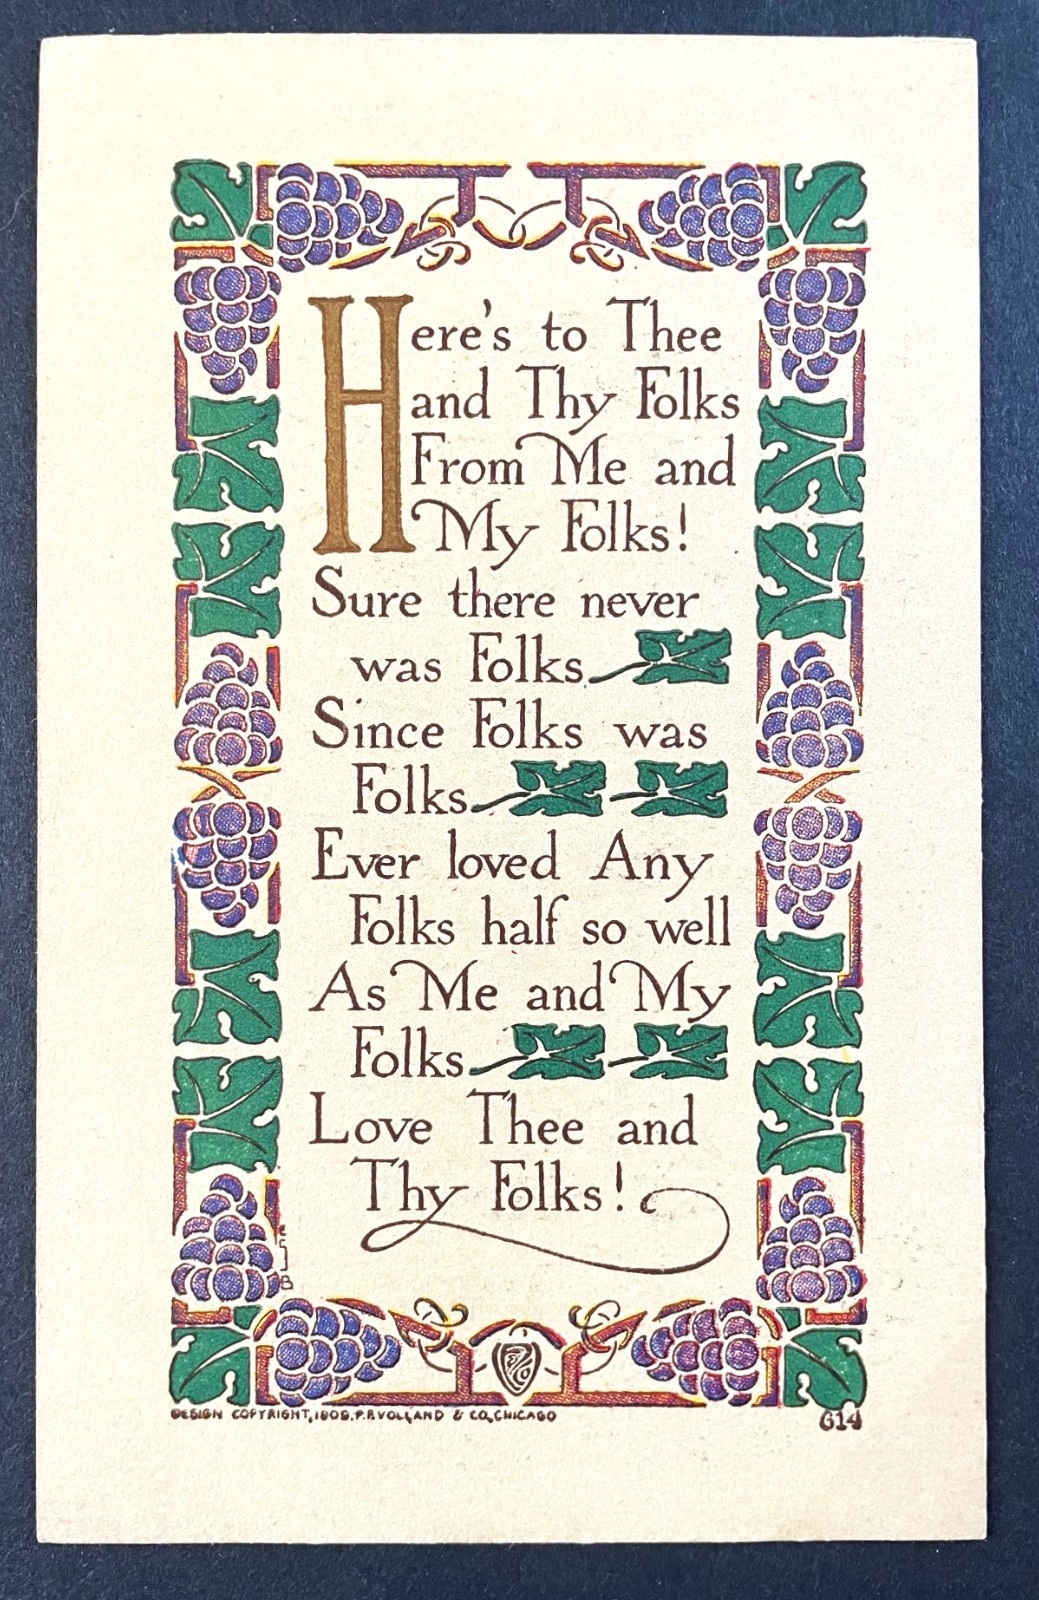 Here's to Thee
and Thy Folks
From Me and
My Folks!
Sure there never
was Folks
Since Folks was
Folks
Ever loved Any
Folks half so well
As Me and My
Folks
Love Thee and
Thy Folks!
DESIGN COPYRIGHT, 1909, P.F. VOLLAND & CO, CHICAGO
614